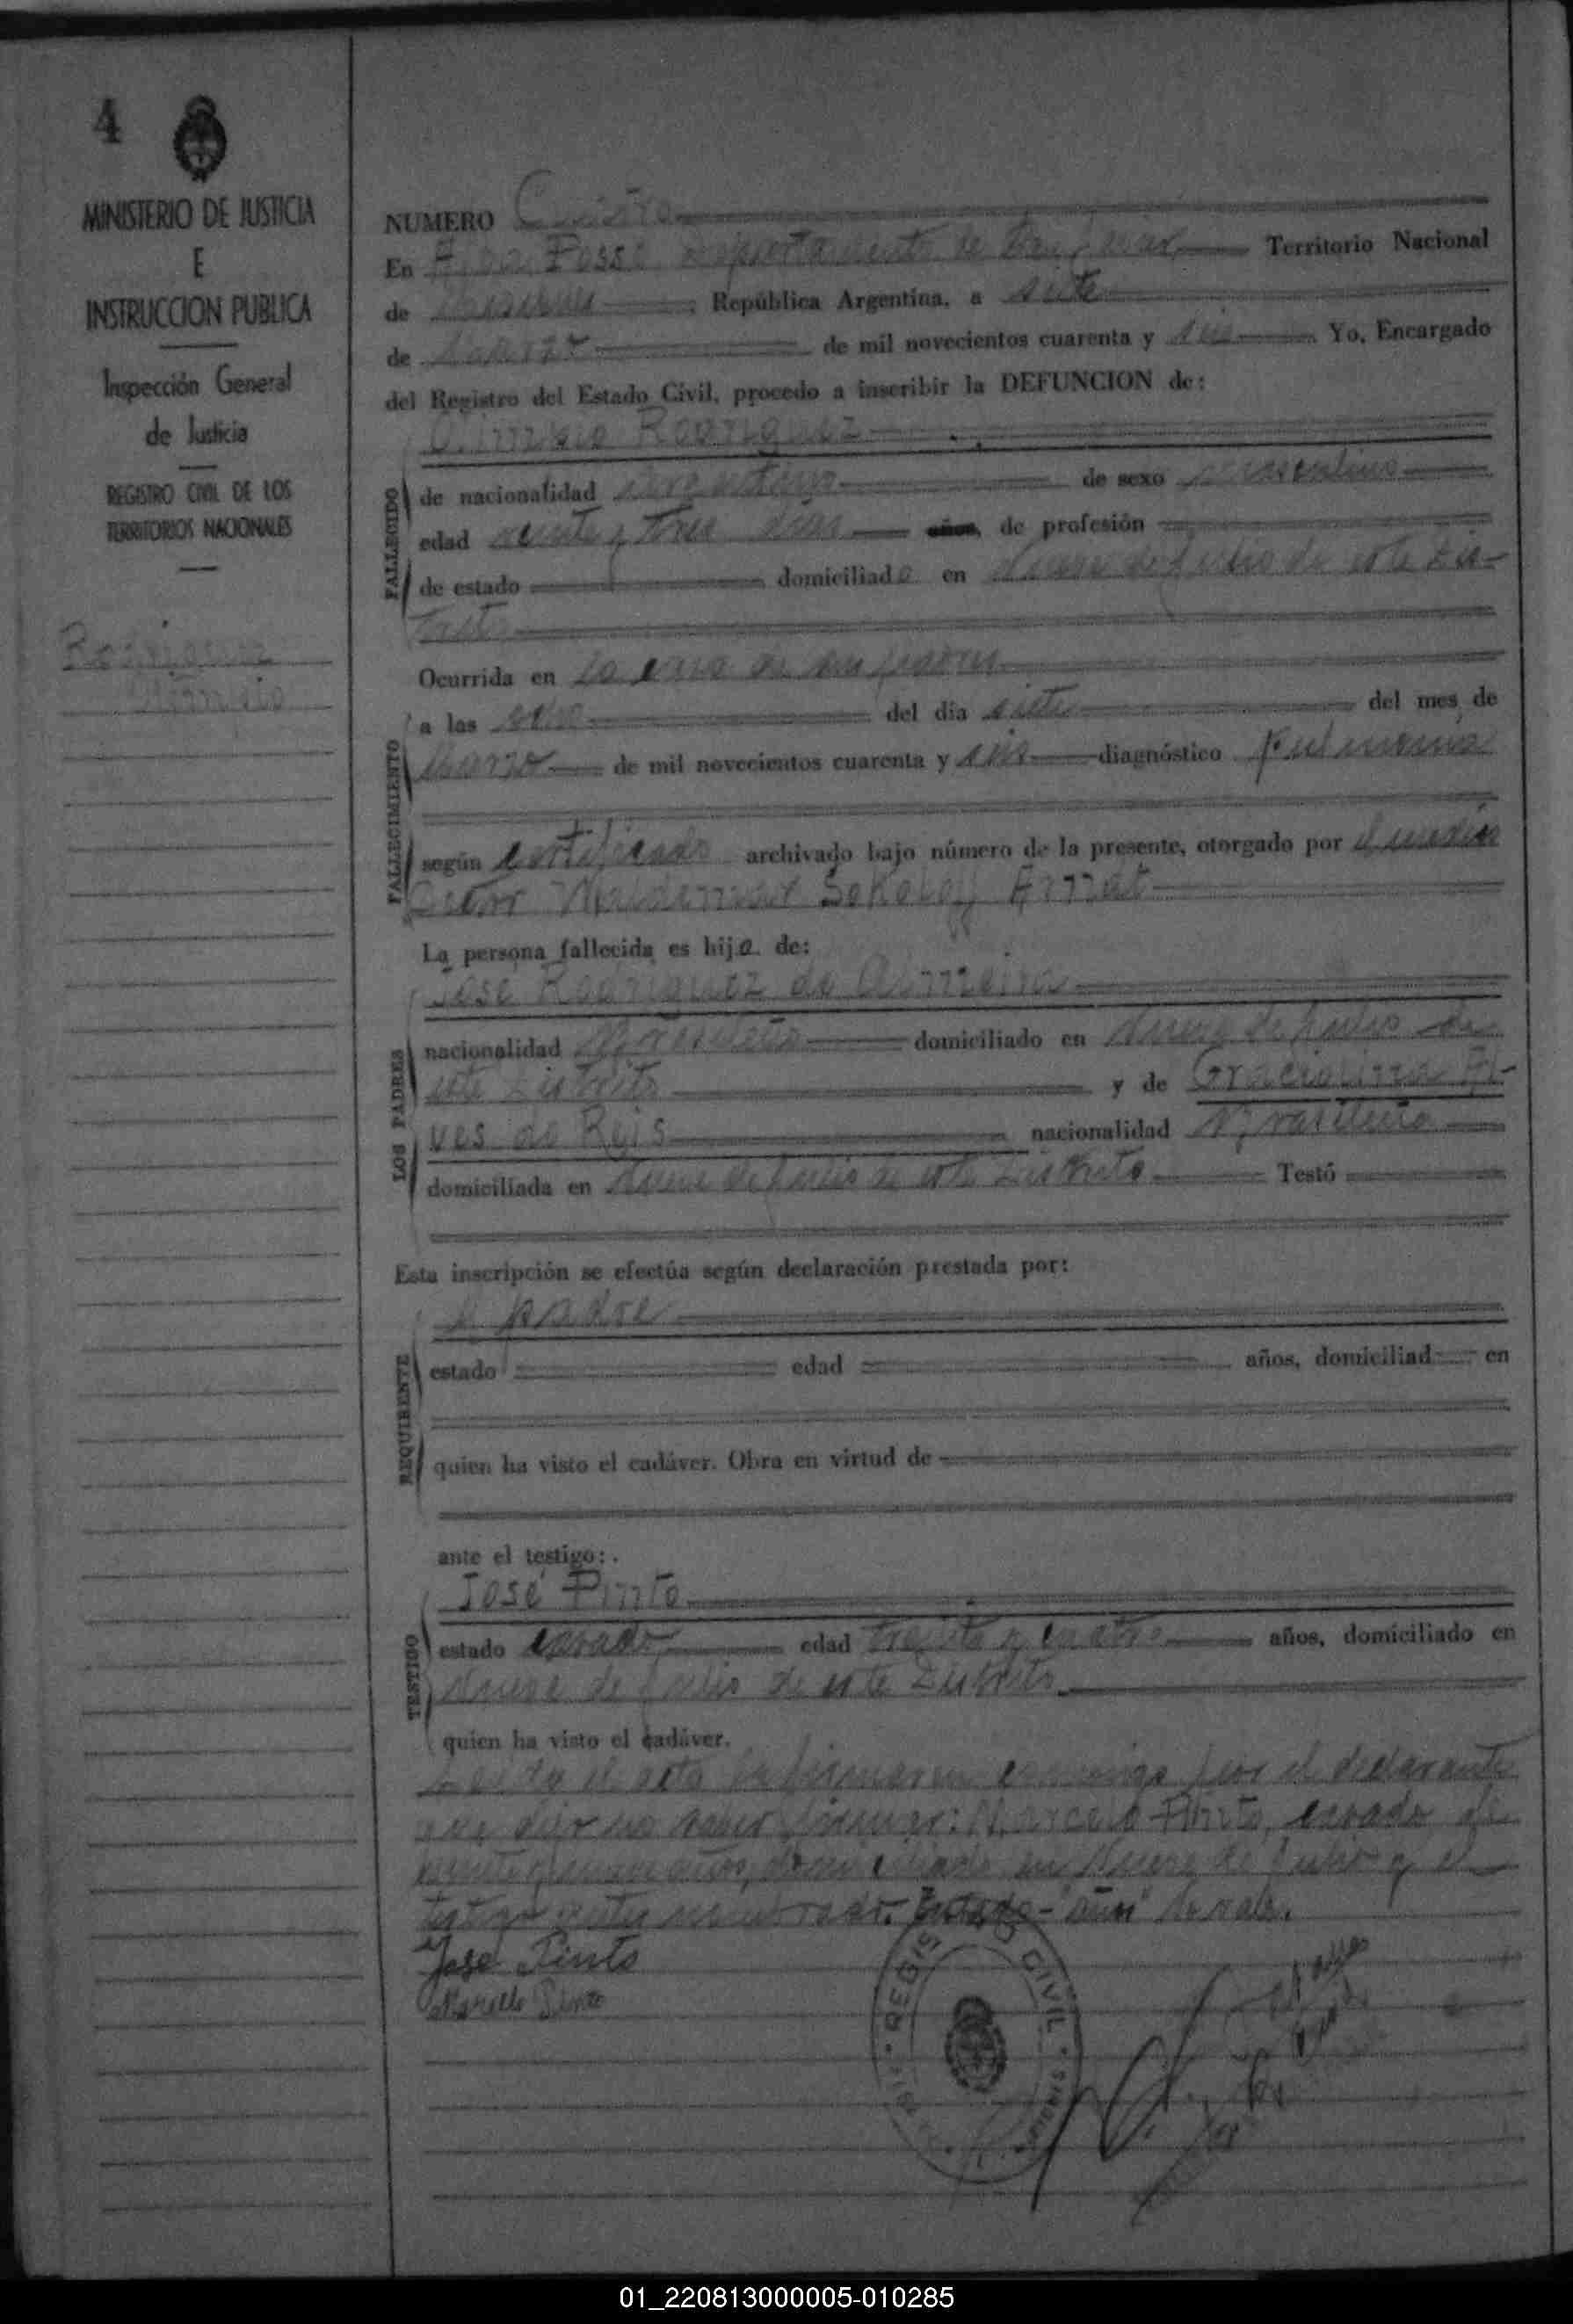 4
MINISTERIO DE JUSTICIA
E
INSTRUCCION PUBLICA
Inspección General
de Justicia
REGISTRO CIVIL DE LOS
TERRITORIOS NACIONALES
Rodriguez
NUMERO Cuatro
En Alba Posse Departamento de Territorio Nacional
de Misiones República Argentina, a siete
de Marzo de mil novecientos cuarenta y seis Yo, Encargado
del Registro del Estado Civil, procedo a inscribir la DEFUNCION de:
Rodriguez
FALLECIDO
de nacionalidad argentina de sexo masculino
edad veinte y tres dias años, de profesión
de estado domiciliado en Nueve de Julio de este Dis-
trito
Ocurrida en la casa de sus padres
FALLECIMIENTO
a las del día siete del mes de
Marzo de mil novecientos cuarenta y seis diagnóstico Pulmonía
según certificado archivado bajo número de la presente, otorgado por el medico
Sokoloff
La persona fallecida es hijo de:
LOS PADRES
José Rodriguez de
nacionalidad Brasileño domiciliado en Nueve de Julio de
este Distrito y de Graciolina Al-
ves de Reis nacionalidad Brasileña
domiciliada en Nueve de Julio de este Distrito Testó
Esta inscripción se efectúa según declaración prestada por:
REQUIRENTE
el padre
estado edad años, domiciliad en
quien ha visto el cadáver. Obra en virtud de
ante el testigo:
TESTIGO
José Pinto
estado casado edad treinta y cuatro años, domiciliado en
Nueve de Julio de este Distrito
quien ha visto el cadáver.
Leida el acta la firmaron conmigo por el declarante
que dijo no saber firmar: Marcelo Pinto, casado de
veinte y nueve años, domiciliado en Nueve de Julio y el
testigo antes nombrado. Testado-"años" no vale.
José Pinto
Marcelo Pinto
REGISTRO CIVIL
01_220813000005-010285